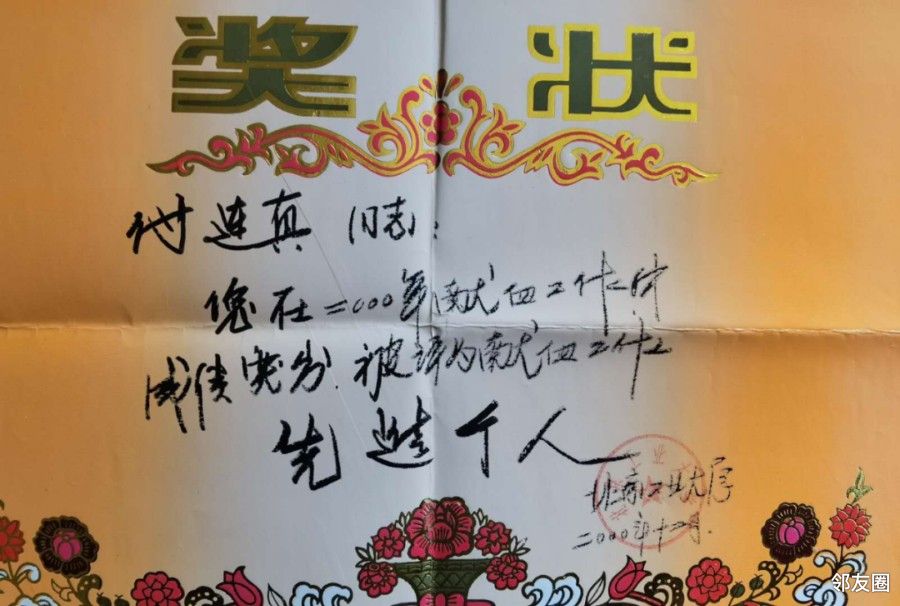 奖状
付连真 同志:
您在二000年献血工作中
成绩突出.被评为献血工作
先进个人
北京工业大学
二000年十二月
邻友圈